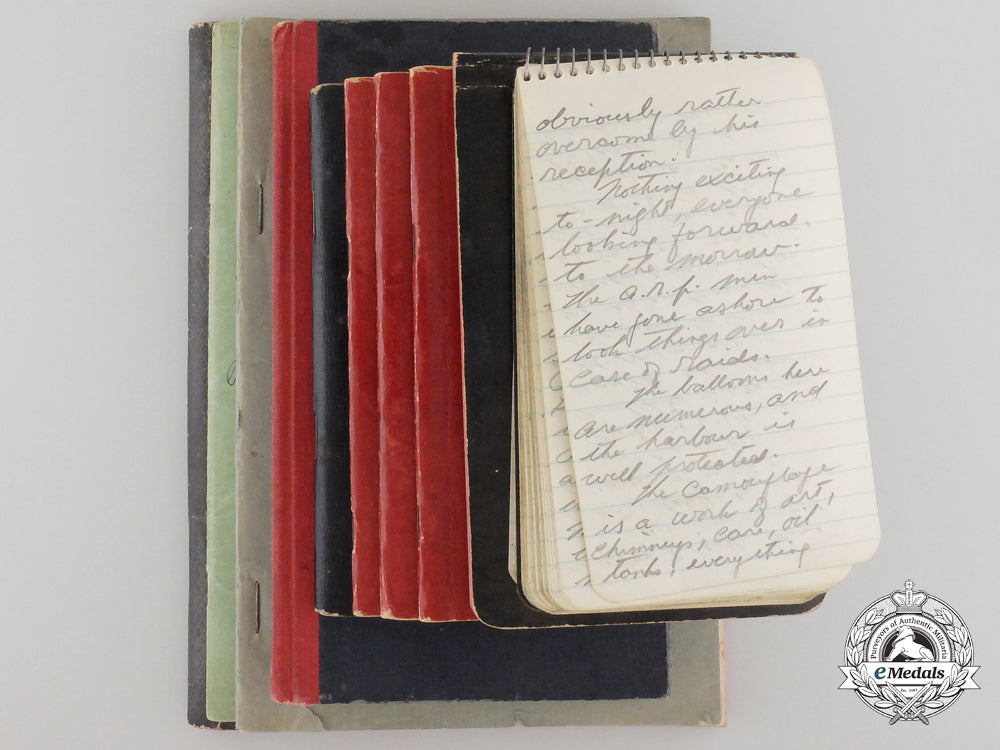 obviously rather
overcome by his
reception:
Nothing exciting
to-night, everyone
looking forward
to the morrow.
The a.r.p. men
have gone ashore to
look things over in
case of raids.
The balloons here
are numerous, and
the harbour is
well protected.
The camouflage
is a work of art,
chimneys, cars, oil
tanks, everything
Purveyors of Authentic Militaria
eMedals